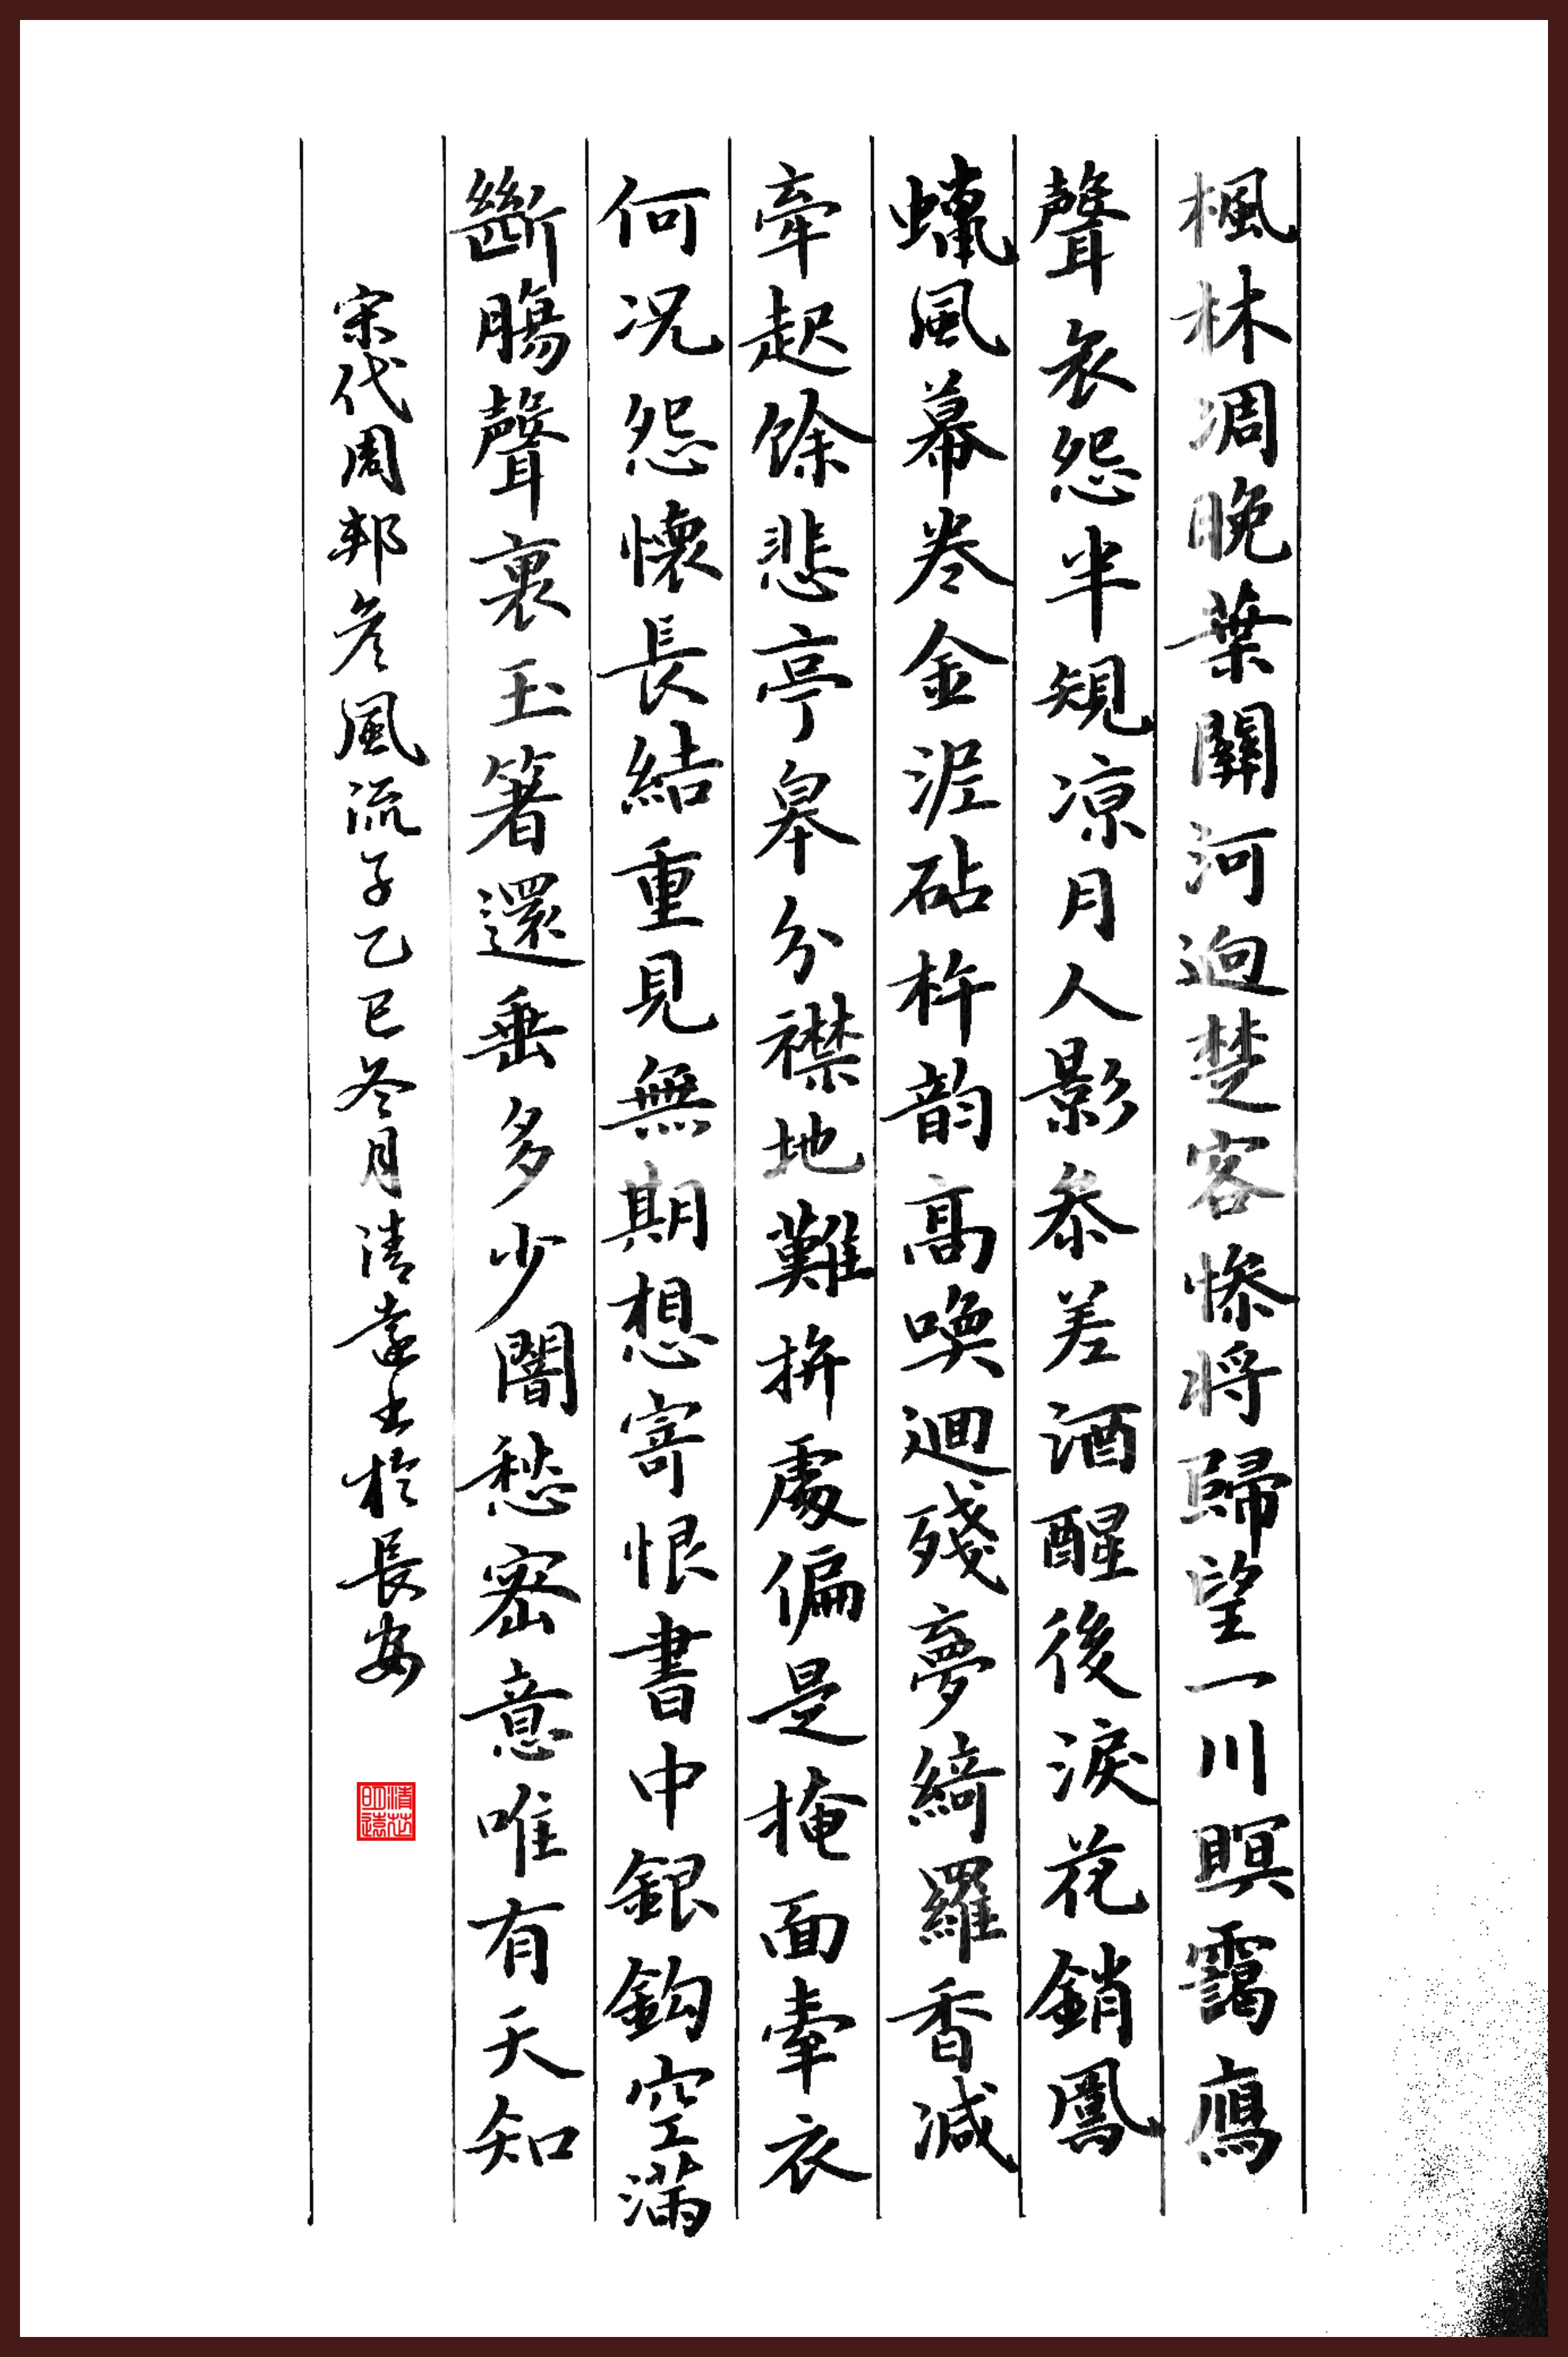 楓林凋晚葉關河迥楚客慘將歸望一川暝靄鴈
聲哀怨半規涼月人影參差酒醒後淚花銷鳳
蠟風幕卷金泥砧杵韵高喚迴殘夢綺羅香減
牽起餘悲亭皋分襟地難拚處偏是掩面牽衣
何況怨懷長結重見無期想寄恨書中銀鈎空滿
斷腸聲裏玉箸還垂多少闇愁密意唯有天知
宋代周邦彥風流子乙巳冬月清遠書於長安